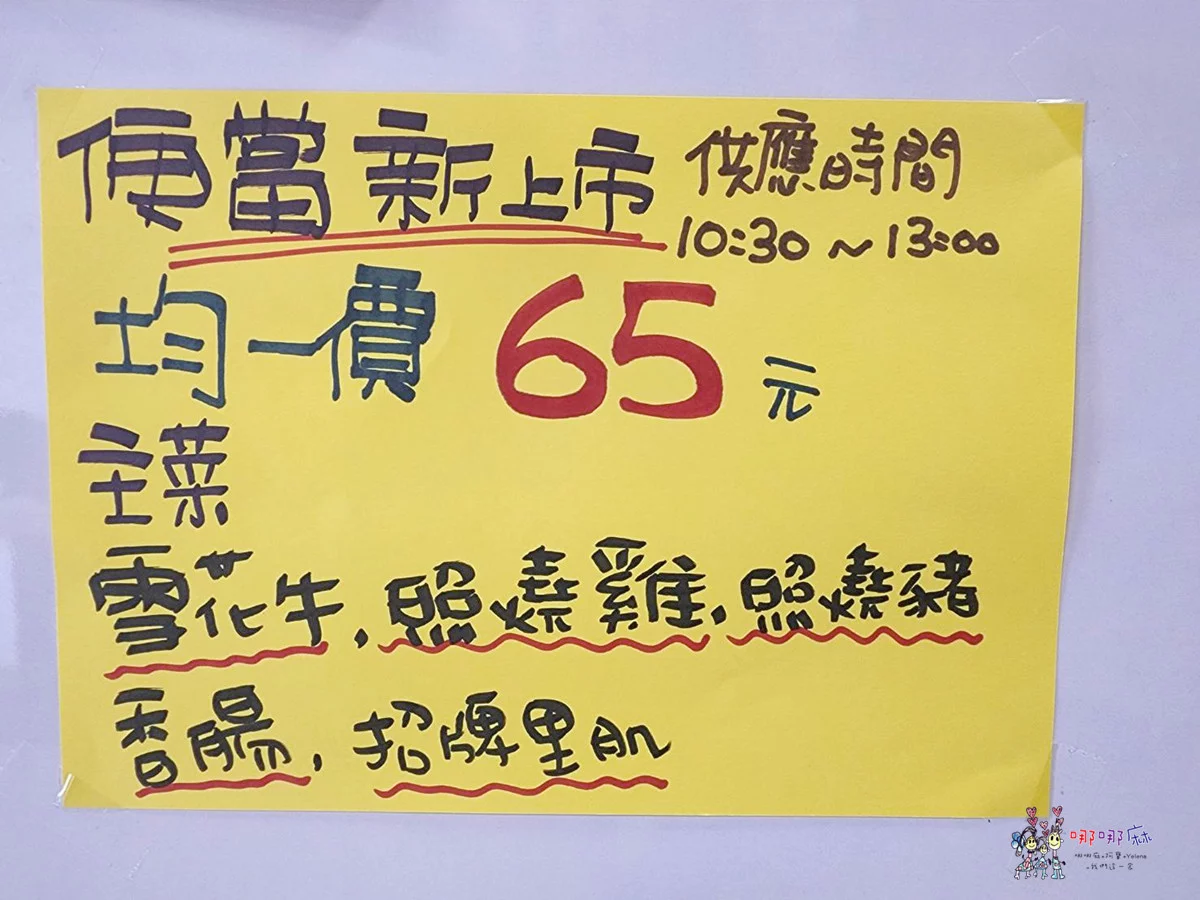 便當新上市 供應時間
10:30 ~ 13:00
均一價 65 元
主菜
雪花牛,照燒雞,照燒豬
香腸,招牌里肌
哪哪麻